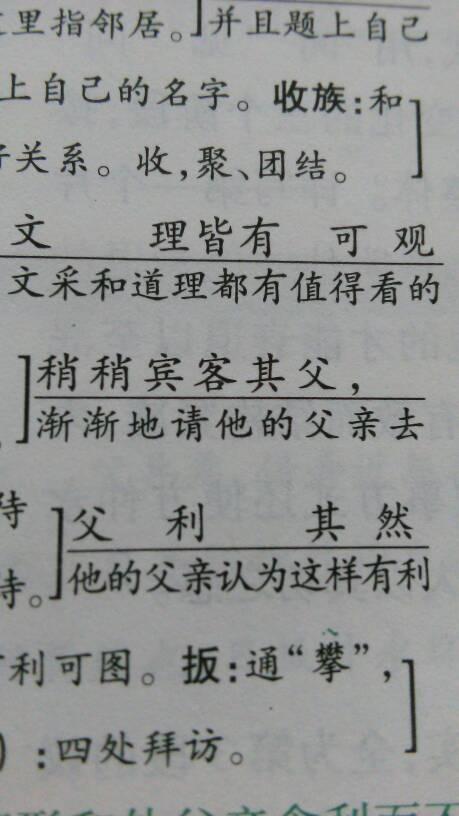 里指邻居。]并且题上自己
上自己的名字。收族:和
关系。收,聚、团结。]
文 理皆有 可观
文采和道理都有值得看的
]稍稍宾客其父,
渐渐地请他的父亲去
父 利 其 然
待。]他的父亲认为这样有利
利可图。扳:通“攀”,
):四处拜访。]